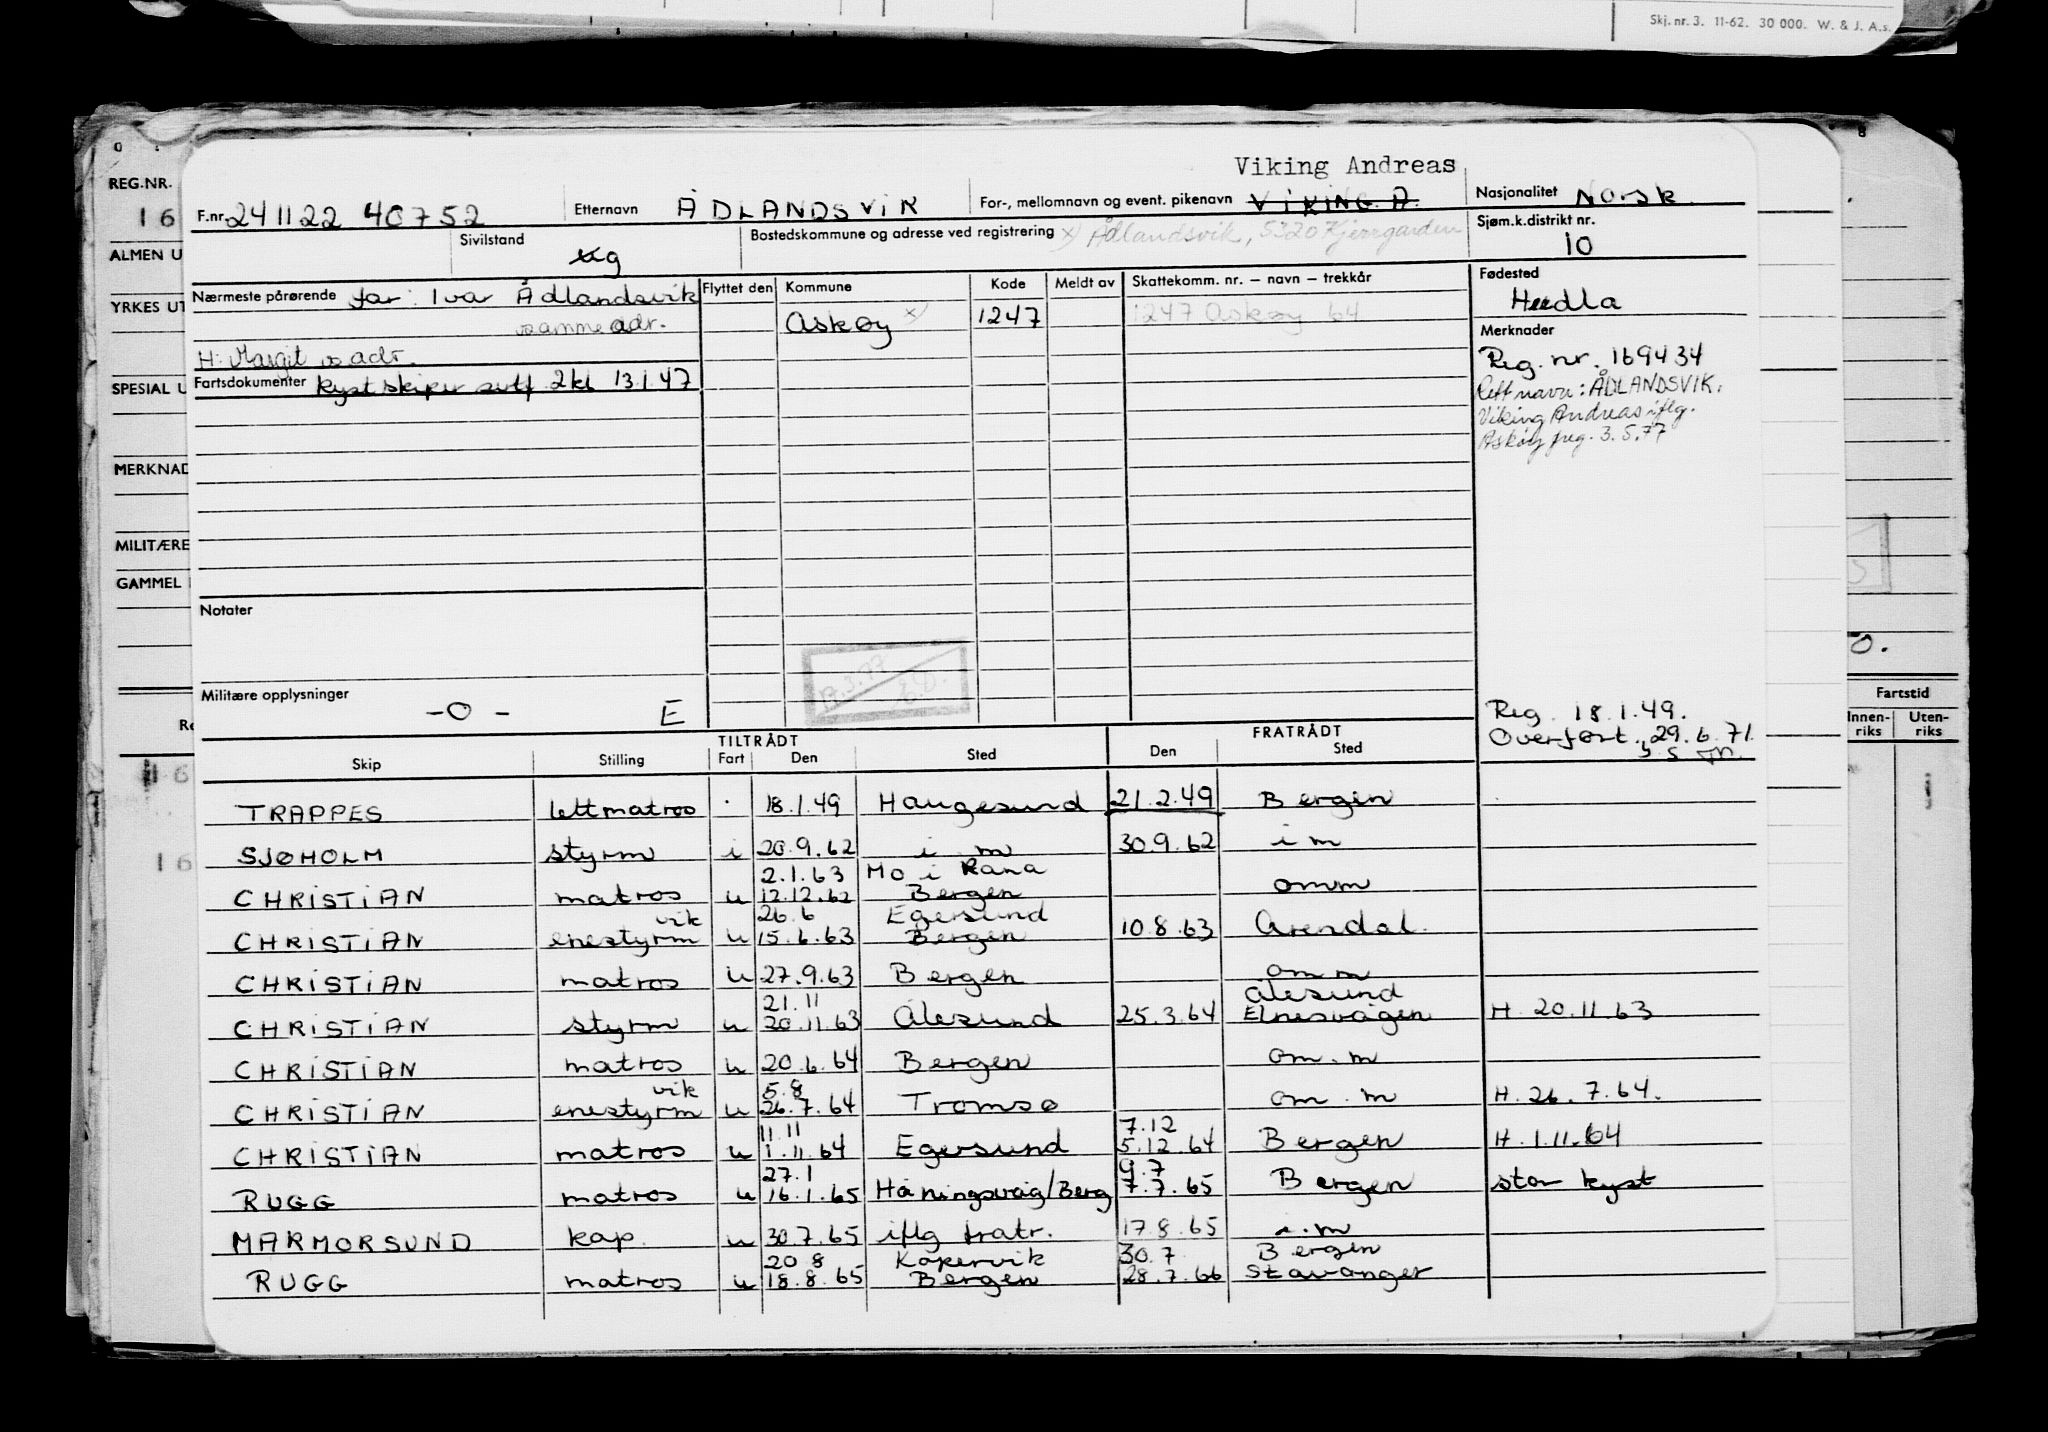 Skj. nr. 3. 11-62. 30 000. W. & J. A.s.
REG.NR.
16
ALMEN U
YRKES UT
SPESIAL U
MERKNAD
MILITÆRE
GAMMEL
Viking Andreas
F.nr. 241122 40752 Etternavn ÅDLANDSVIK For-, mellomnavn og event. pikenavn VIKING A. Nasjonalitet Norsk
Sivilstand g Bostedskommune og adresse ved registrering x) Ådlandsvik, 5320 Kjerrgarden Sjøm.k.distrikt nr. 10
Nærmeste pårørende far: Ivar Ådlandsvik Flyttet den Kommune Kode Meldt av Skattekomm. nr. – navn – trekkår Fødested
samme adr. Askøy x) 1247 1247 Askøy 64 Herdla
H: Margit s adr. Merknader
Fartsdokumenter kystskiper sertf 2kl 13.1.47 Reg. nr. 169434
Rett navn: ÅDLANDSVIK,
Viking Andreas iflg.
Askøy freg. 3.5.77
Notater
17.3.77
Militære opplysninger -0- E
Reg. 18.1.49.
Overført. 29.6.71.
TILTRÅDT FRATRÅDT
Skip Stilling Fart Den Sted Den Sted
Fartstid
Innenriks Utenriks
TRAPPES lettmatros 18.1.49 Haugesund 21.2.49 Bergen
SJØHOLM styrm i 20.9.62 i m 30.9.62 i m
2.1.63 Mo i Rana
CHRISTIAN matros u 12.12.62 Bergen omm
vik 26.6 Egersund
CHRISTIAN enestyrm u 15.6.63 Bergen 10.8.63 Arendal.
CHRISTIAN matros u 27.9.63 Bergen omm
21.11 Ålesund
CHRISTIAN styrm u 20.11.63 Ålesund 25.3.64 Elnesvågen H. 20.11.63
CHRISTIAN matros u 20.6.64 Bergen om.m
vik 5.8
CHRISTIAN enestyrm u 26.7.64 Tromsø om.m H. 26.7.64.
11.11 7.12
CHRISTIAN matros u 1.11.64 Egersund 5.12.64 Bergen H. 1.11.64
27.1 9.7
RUGG matros u 16.1.65 Honingsvåg/Berg 7.7.65 Bergen stor kyst
MARMORSUND kap. u 30.7.65 iflg fratr. 17.8.65 i.m
20 8 Kopervik 30.7 Bergen
RUGG matros u 18.8.65 Bergen 28.7.66 Stavanger